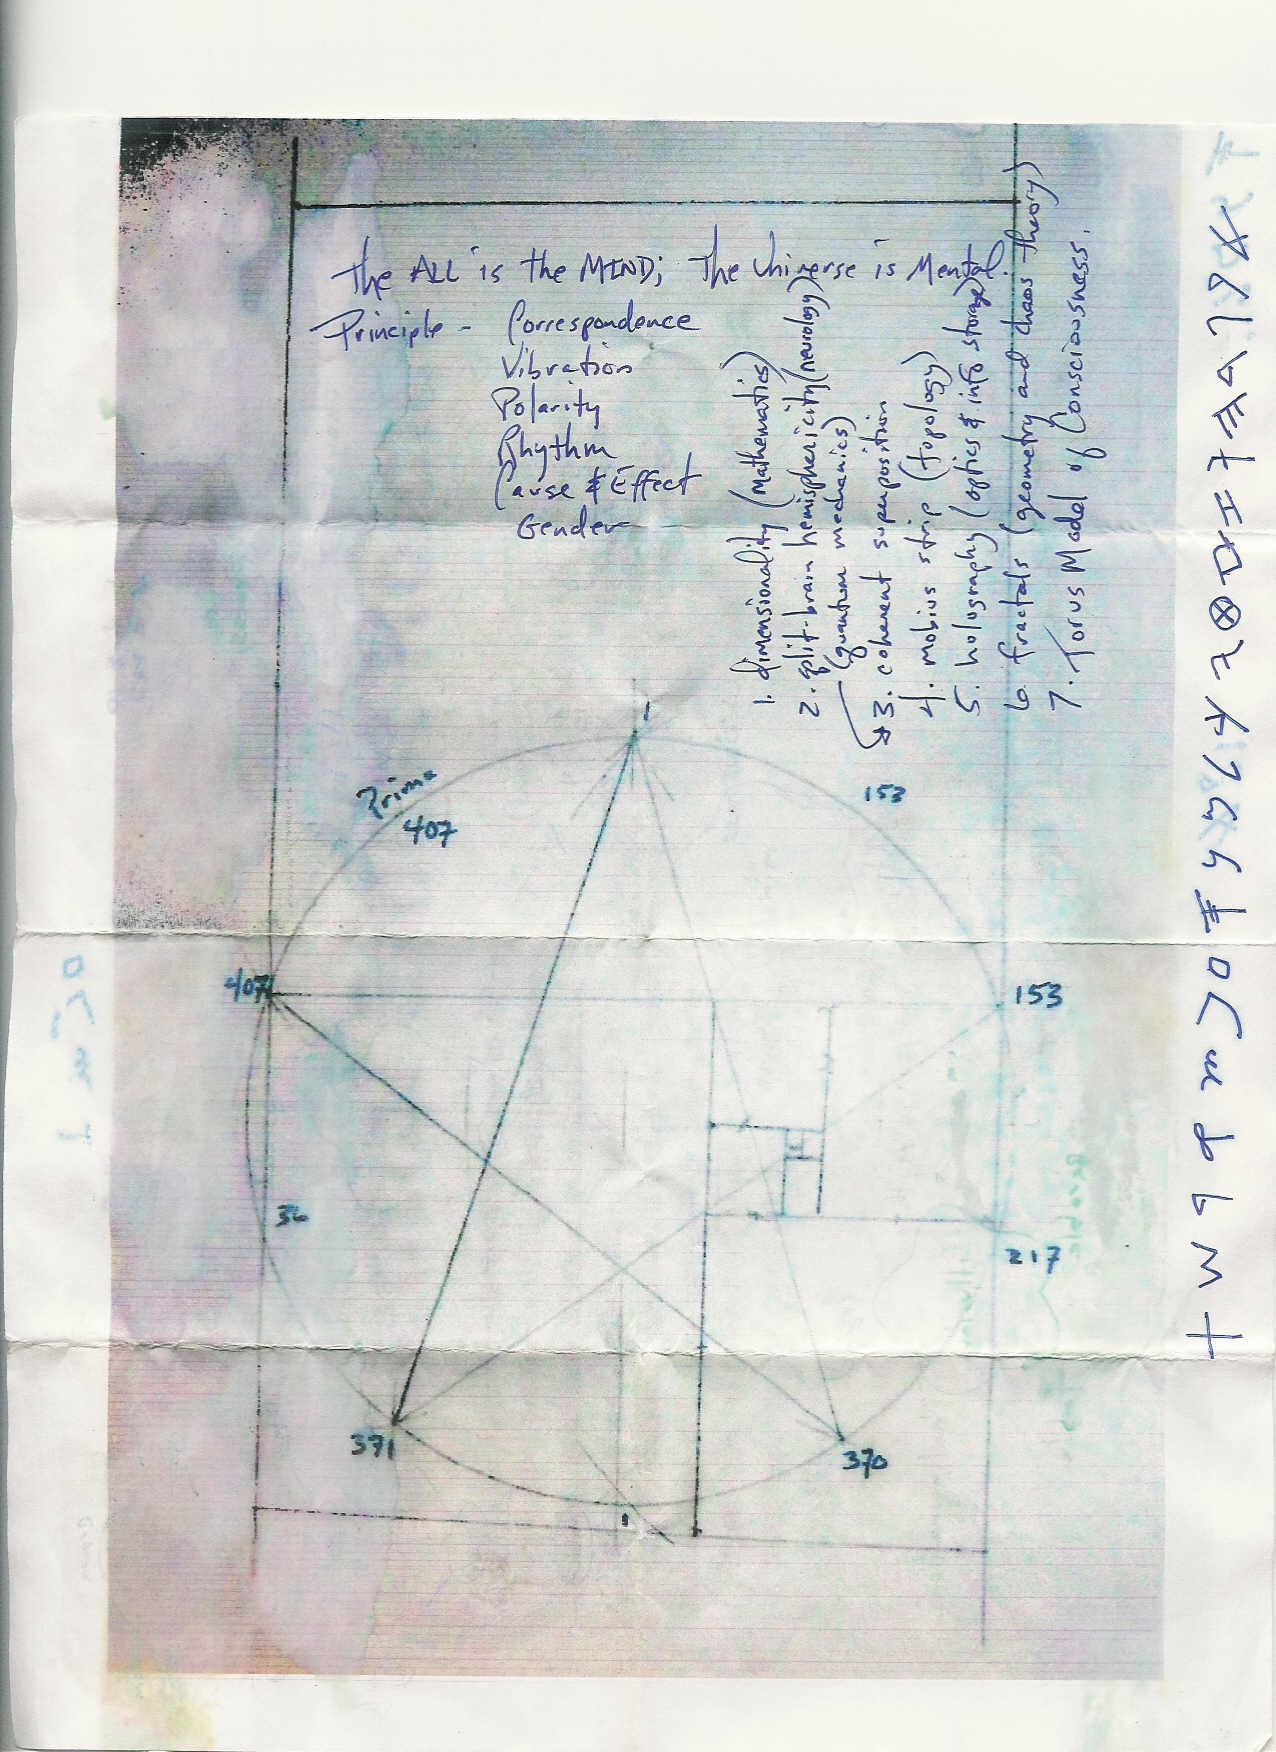 The ALL is the MIND; The Universe is Mental.
Principle - Correspondence
Vibration
Polarity
Rhythm
Cause & Effect
Gender
1. dimensionality (Mathematics)
2. split-brain hemisphericity (neurology)
(quantum mechanics)
3. coherent superposition
4. mobius strip (topology)
5. holography (optics & info storage)
6. fractals (geometry and chaos theory)
7. Torus Model of Consciousness.
1
Prime
407
153
407
153
36
217
371
370
1